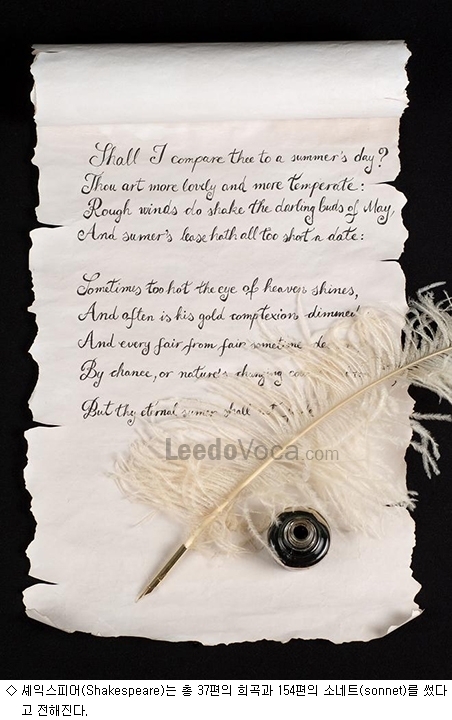 Shall I compare thee to a summer's day?
Thou art more lovely and more temperate:
Rough winds do shake the darling buds of May,
And sumer's lease hath all too short a date:
Sometimes too hot the eye of heaven shines,
And often is his gold complexion dimmed
And every fair from fair sometime de
By chance, or nature's changing cou
But thy eternal sumer shall not
LeedoVoca.com
◇ 셰익스피어(Shakespeare)는 총 37편의 희곡과 154편의 소네트(sonnet)를 썼다
고 전해진다.